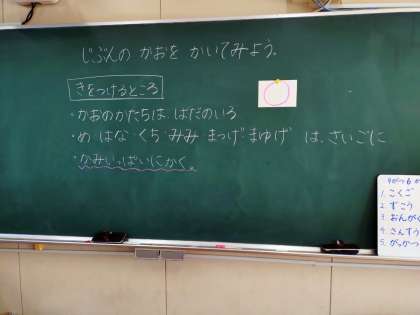 じぶんの かおを かいてみよう。
きをつけるところ
・かおのかたちは はだのいろ
・め はな くち みみ まつげ まゆげ は、さいごに
・なみいっぱいにかく。
4がつ6
1. こくご
2. ずこう
3. おんがく
4. さんすう
5. がっかつ